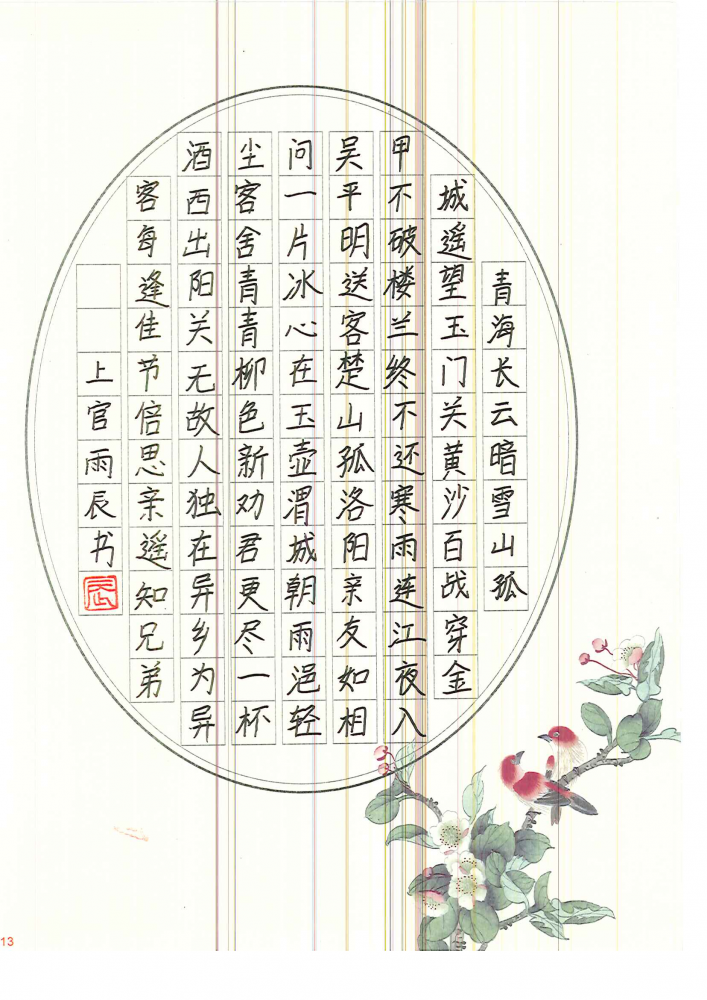 青海长云暗雪山孤
城遥望玉门关黄沙百战穿金
甲不破楼兰终不还寒雨连江夜入
吴平明送客楚山孤洛阳亲友如相
问一片冰心在玉壶渭城朝雨浥轻
尘客舍青青柳色新劝君更尽一杯
酒西出阳关无故人独在异乡为异
客每逢佳节倍思亲遥知兄弟
上官雨辰书
辰
13